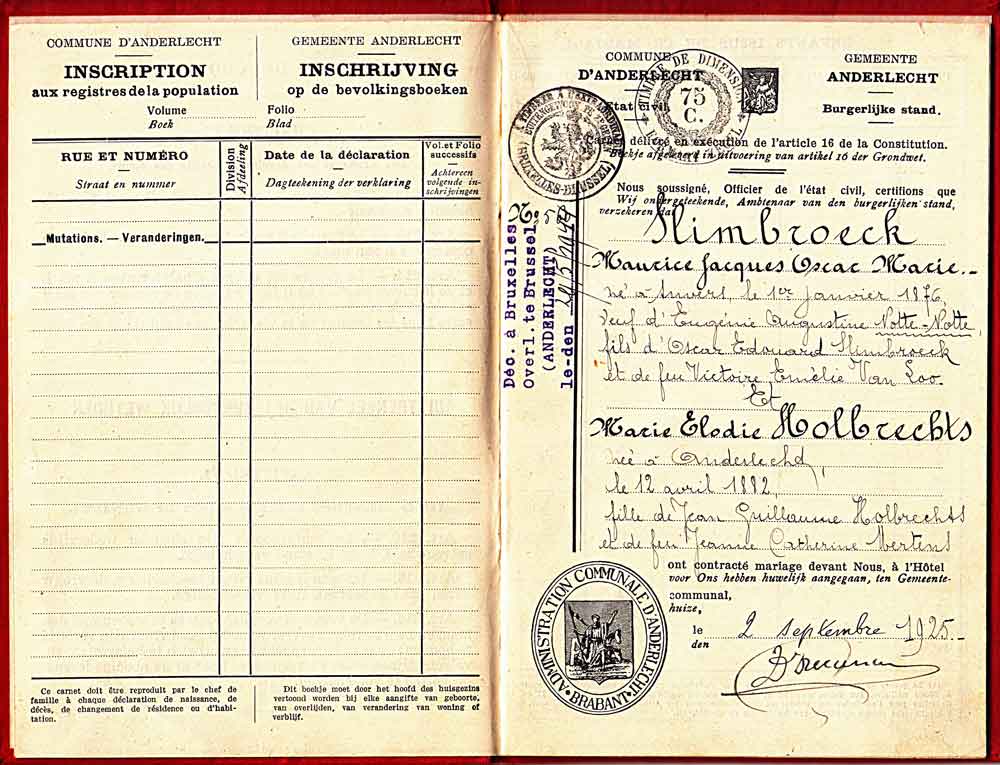 COMMUNE D'ANDERLECHT
INSCRIPTION
aux registres de la population
GEMEENTE ANDERLECHT
INSCHRIJVING
op de bevolkingsboeken
Volume
Boek
Folio
Blad
RUE ET NUMÉRO
Straat en nummer
Division
Afdeeling
Date de la déclaration
Dagteekening der verklaring
Vol. et Folio
successifs
Achtereen
volgende in-
schrijvingen
Mutations. — Veranderingen.
Ce carnet doit être reproduit par le chef de
famille à chaque déclaration de naissance, de
décès, de changement de résidence ou d'habi-
tation.
Dit boekje moet door het hoofd des huisgezins
vertoond worden bij elke aangifte van geboorte,
van overlijden, van verandering van woning of
verblijf.
COMMUNE
D'ANDERLECHT
État civil.
GEMEENTE
ANDERLECHT
Burgerlijke stand.
TIMBRE DE DIMENSION
75
C.
BRUXELLES-BRUSSEL
Carnet délivré en exécution de l'article 16 de la Constitution.
Boekje afgeleverd in uitvoering van artikel 16 der Grondwet.
Nous soussigné, Officier de l'état civil, certifions que
Wij ondergeteekende, Ambtenaar van den burgerlijken stand,
verzekeren dat
Déc. à Bruxelles No
Overl. te Brussel
(ANDERLECHT)
le-den
Slimbroeck
Maurice Jacques Oscar Marie.-
né à Anvers, le 1er Janvier 1876,
veuf d'Eugénie Augustine Notte-Notte,
fils d'Oscar Edouard Slimbroeck
et de feu Victoire Emélie Van Loo.
Et
Marie Elodie Holbrechts
née à Anderlecht,
le 12 avril 1882,
fille de Jean Guillaume Holbrechts
et de feu Jeannie Catherine Mertens
ont contracté mariage devant Nous, à l'Hôtel
voor Ons hebben huwelijk aangegaan, ten Gemeente-
communal,
huize,
le
den
2 septembre 1925.-
ADMINISTRATION COMMUNALE D'ANDERLECHT
BRABANT